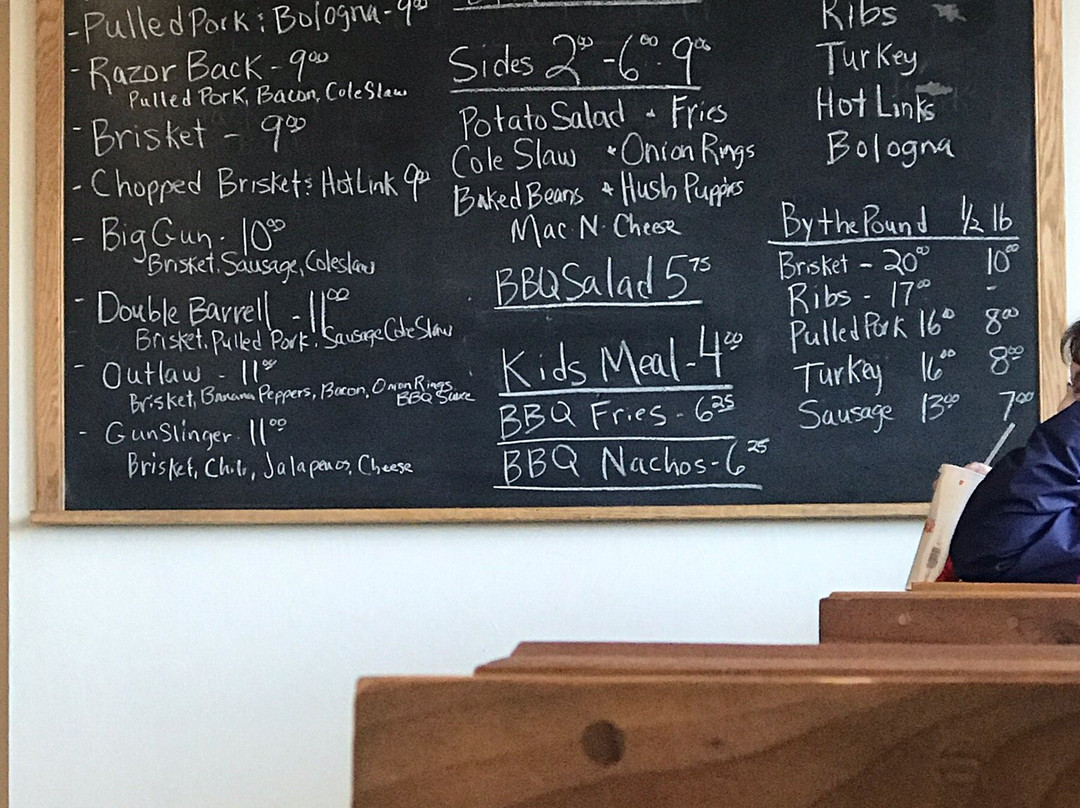 - Pulled Pork & Bologna - 9⁰⁰
- Razor Back - 9⁰⁰
Pulled Pork, Bacon, Cole Slaw
- Brisket - 9⁰⁰
- Chopped Brisket & Hot Link 9⁰⁰
- Big Gun - 10⁰⁰
Brisket, Sausage, Coleslaw
- Double Barrell - 11⁰⁰
Brisket, Pulled Pork, Sausage, Cole Slaw
- Outlaw - 11⁰⁰
Brisket, Banana Peppers, Bacon, Onion Rings
BBQ Sauce
- GunSlinger 11⁰⁰
Brisket, Chili, Jalapenos, Cheese
Sides 2⁰⁰ - 6⁰⁰ - 9⁰⁰
Potato Salad * Fries
Cole Slaw * Onion Rings
Baked Beans * Hush Puppies
Mac N. Cheese
BBQ Salad 5⁷⁵
Kids Meal - 4⁰⁰
BBQ Fries - 6²⁵
BBQ Nachos - 6²⁵
Ribs
Turkey
Hot Links
Bologna
By the Pound ½ lb
Brisket - 20⁰⁰ 10⁰⁰
Ribs - 17⁰⁰ -
Pulled Pork 16⁰⁰ 8⁰⁰
Turkey 16⁰⁰ 8⁰⁰
Sausage 13⁰⁰ 7⁰⁰